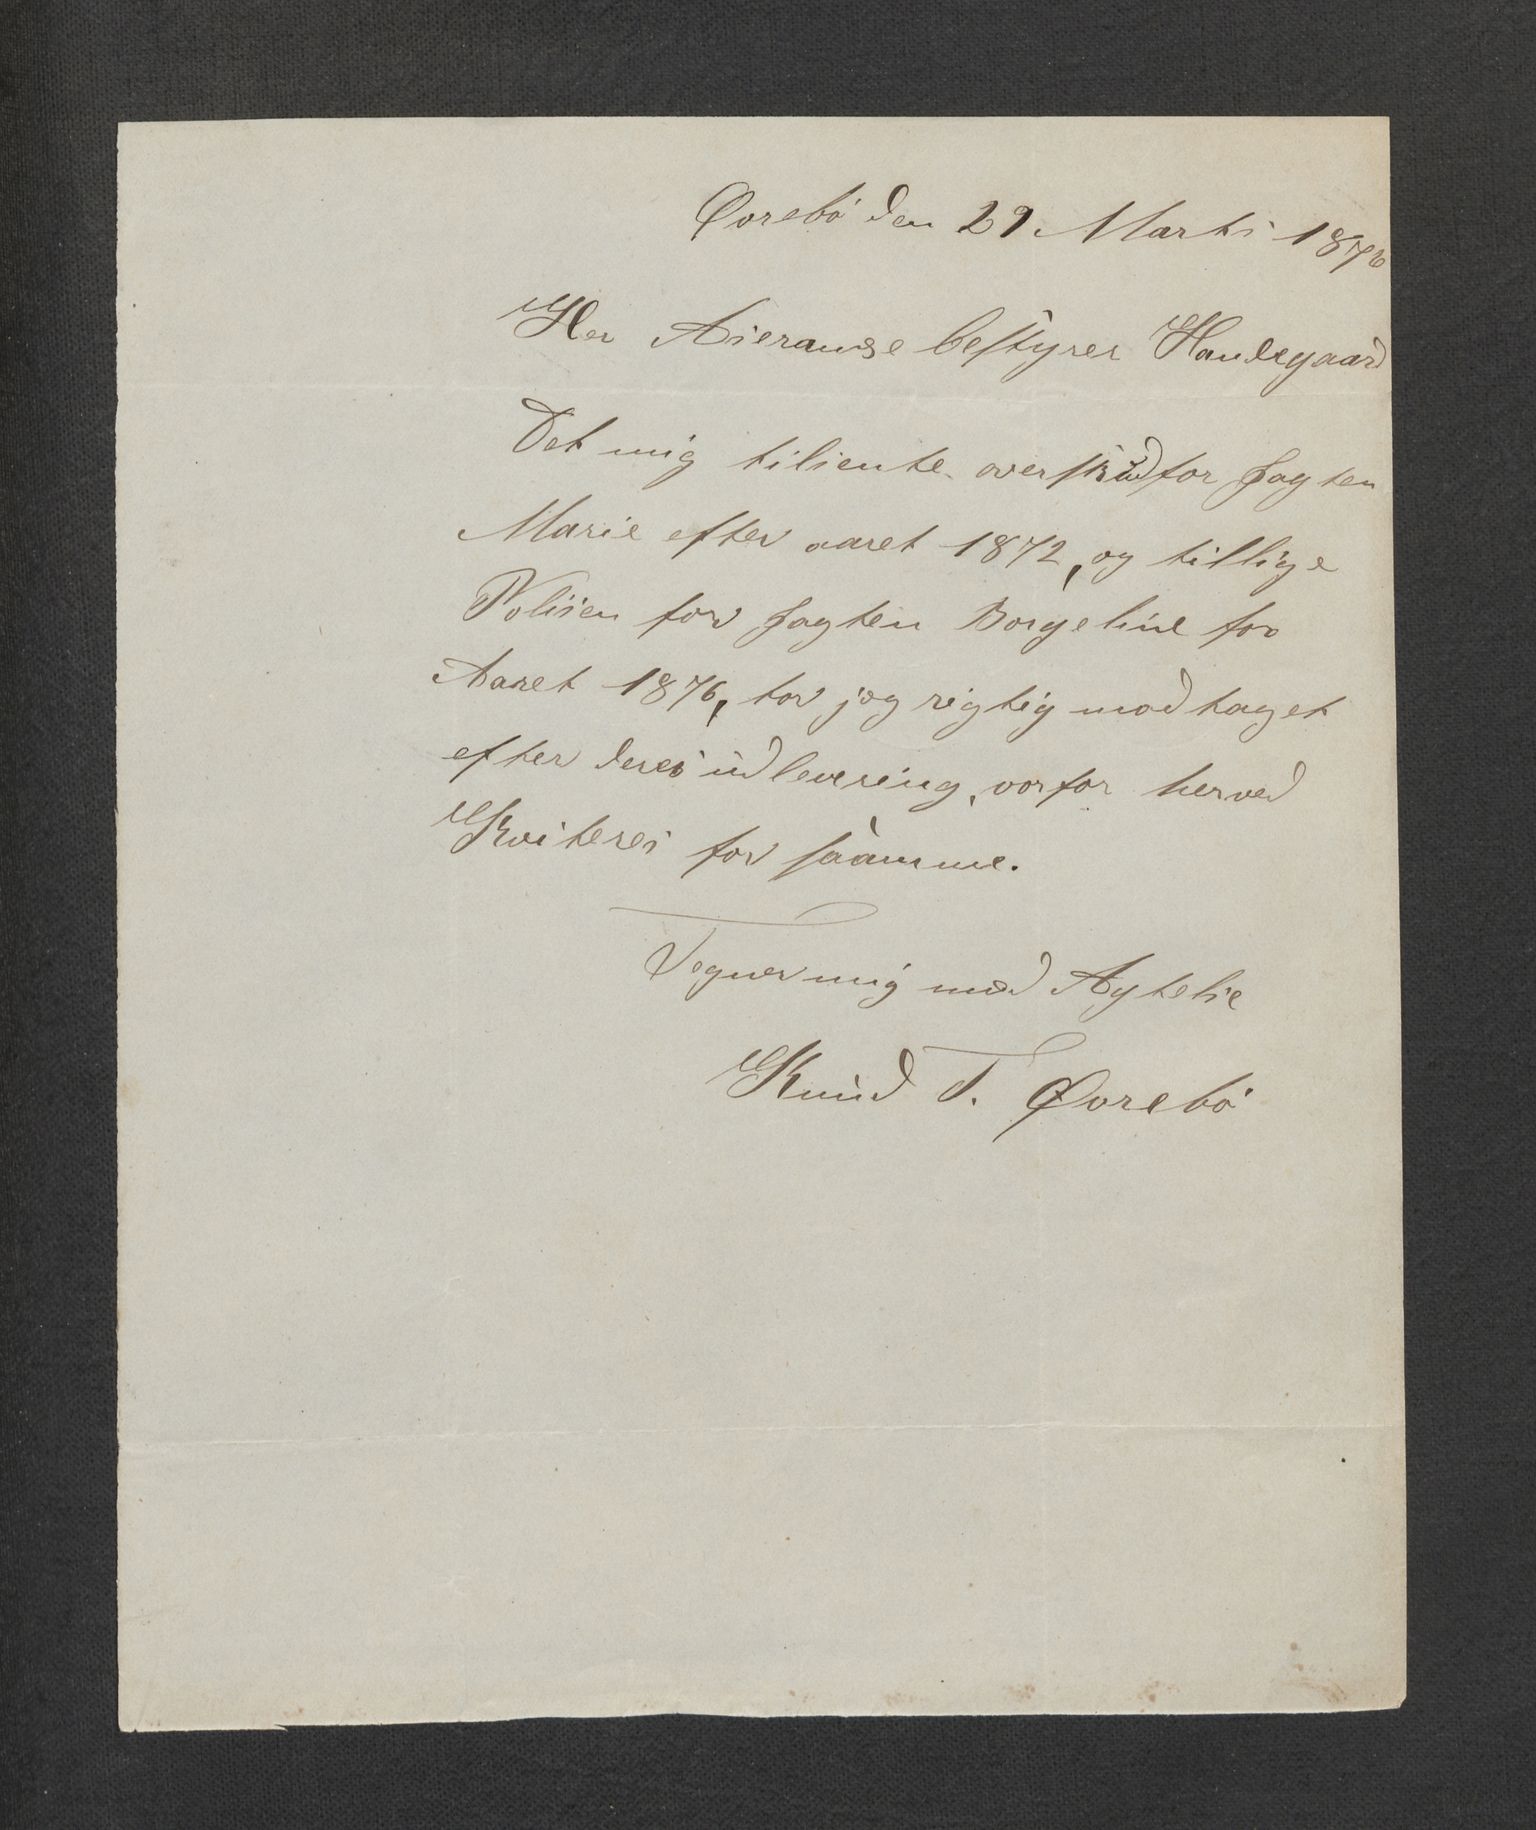 Øvrebö den 29 Marts 1876
Her Asieranse bestyrer Handegaard
Det mig tiliente overskud for Jagten
Marie efter aaret 1872, og tillige
Polisen for Jagten Borgeline for
Aaret 1876, har jeg rigtig modtaget
efter deres udlevering, vorfor herved
Kviteres for saamme.
Tegner mig med Agtelse
Knud T. Øvrebö